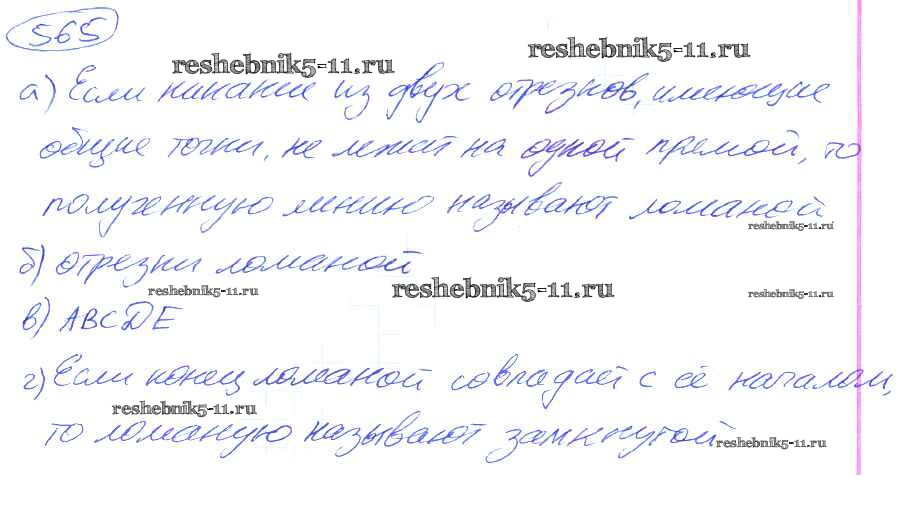 565
reshebnik5-11.ru
reshebnik5-11.ru
а) Если никакие из двух отрезков, имеющие
общие точки, не лежат на одной прямой, то
полученную линию называют ломаной
reshebnik5-11.ru
б) отрезки ломаной
reshebnik5-11.ru
reshebnik5-11.ru
reshebnik5-11.ru
в) ABCDE
г) Если конец ломаной совпадает с её началом,
reshebnik5-11.ru
то ломаную называют замкнутой
reshebnik5-11.ru